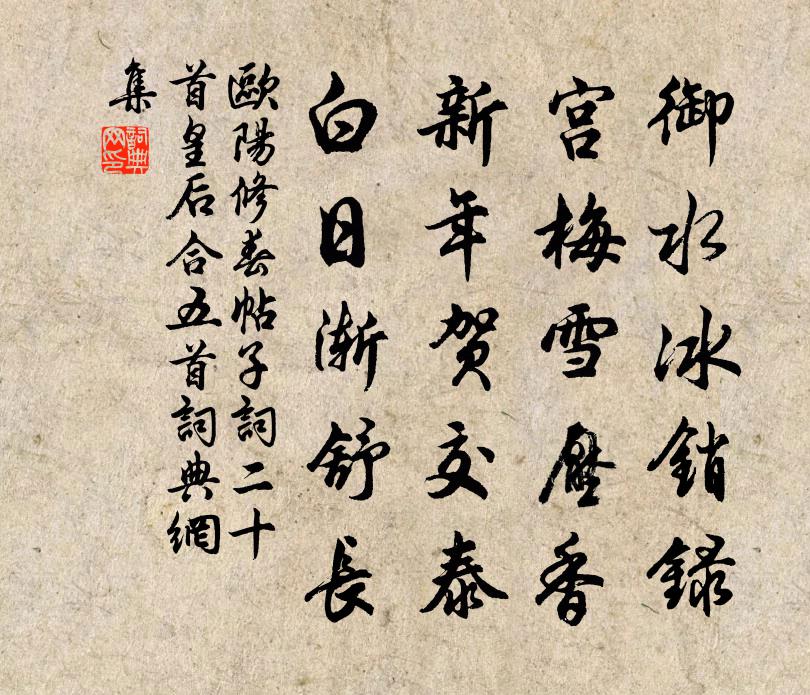 御水冰銷録
宫梅雪壓香
新年贺交泰
白日渐舒長
歐陽修春帖子詞二十
首皇后合五首詞典網
集
詞典
网印